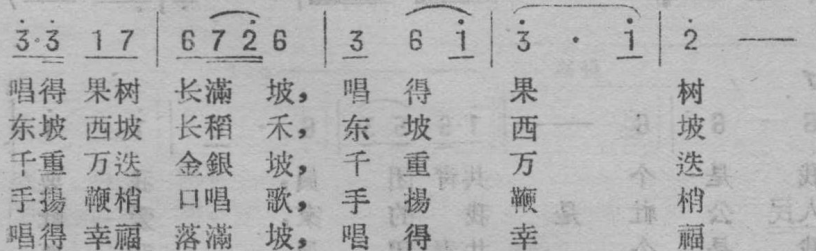 3·3 1 7 | 6 7 2 6 | 3 6 1 | 3 · 1 | 2 —
唱得 果树 长滿 坡， 唱 得 果 树
东坡 西坡 长稻 禾， 东 坡 西 坡
千重 万迭 金銀 坡， 千 重 万 迭
手揚 鞭梢 口唱 歌， 手 揚 鞭 梢
唱得 幸福 落滿 坡， 唱 得 幸 福